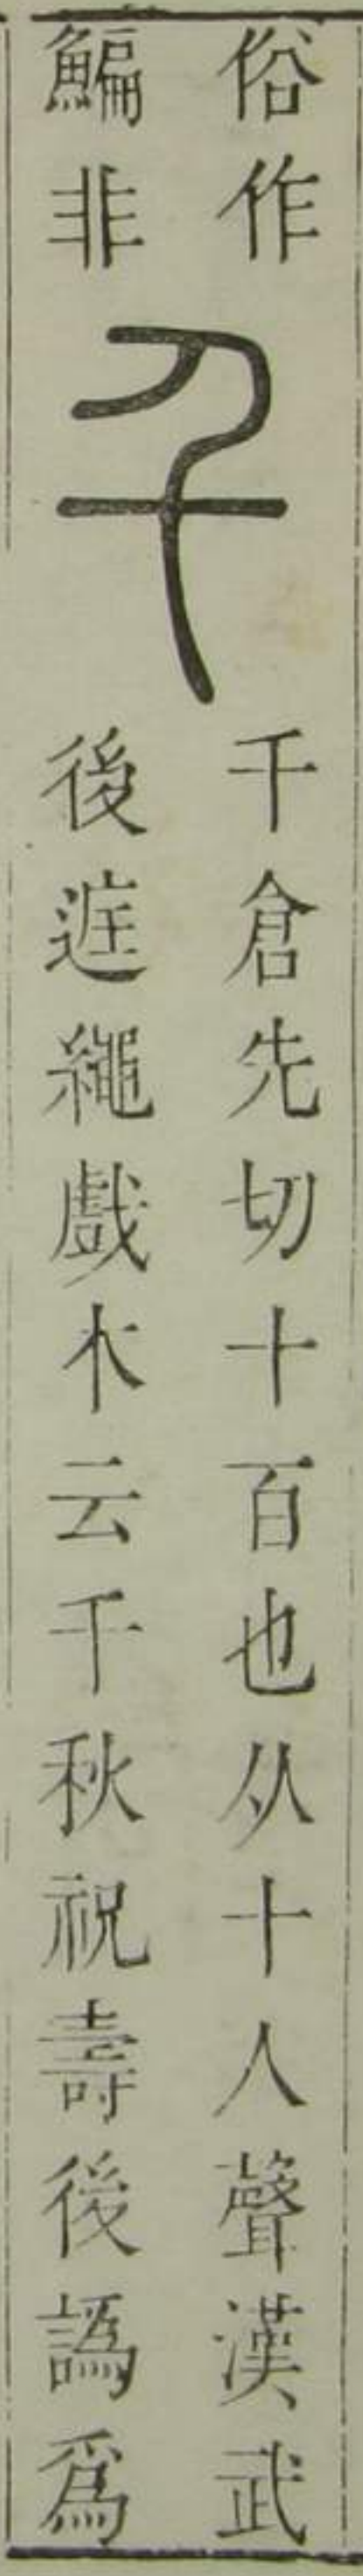 俗作
鯿非
千
千倉先切十百也从十人聲漢武
後庭繩戲木云千秋祝壽後譌爲